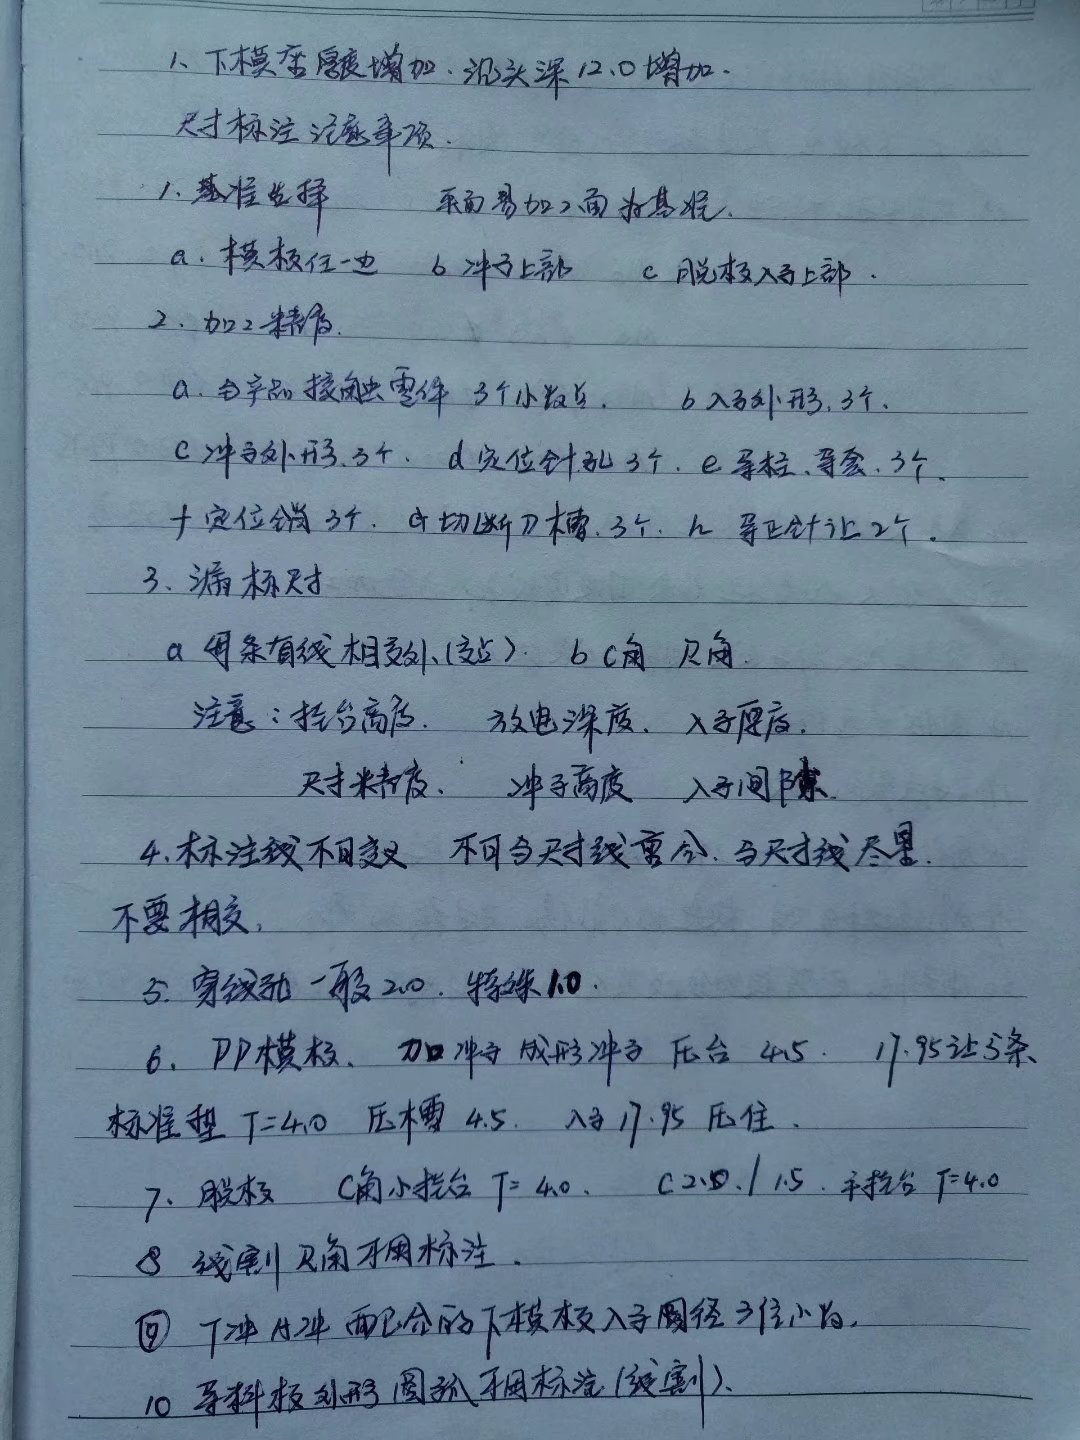 1、下模座厚度增加.沉头深12.0增加.
尺寸标注注意事项.
1、基准选择 平面易加工面为基准.
a. 模板任一边 b 冲子上部 c 脱板入子上部.
2、加工精度.
a. 与产品接触零件 3个小数点. b 入子外形.3个.
c 冲子外形.3个. d 定位针孔 3个. e 导柱、导套.3个.
f 定位销 3个. g 切断刀槽.3个. h 导正针让2个.
3、漏标尺寸
a 每条直线相交处(交点). b C角 R角.
注意:挂台高度. 放电深度. 入子厚度.
尺寸精度. 冲子高度 入子间隙
4.标注线不可交叉 不可与尺寸线重合.与尺寸线尽量.
不要相交.
5. 穿线孔一般2.0. 特殊1.0.
6、PP模板、 加冲子 成形冲子 压台 4.5. 17.95让5条
标准型 T=4.0 压槽 4.5. 入子17.95 压住.
7、脱板 C角小挂台 T=4.0. C2.0./1.5. 平挂台 T=4.0
8 线割R角不用标注.
⑨ T冲 A冲 配合的下模板入子圆径3位小数.
10 导料板外形圆弧不用标注(线割).